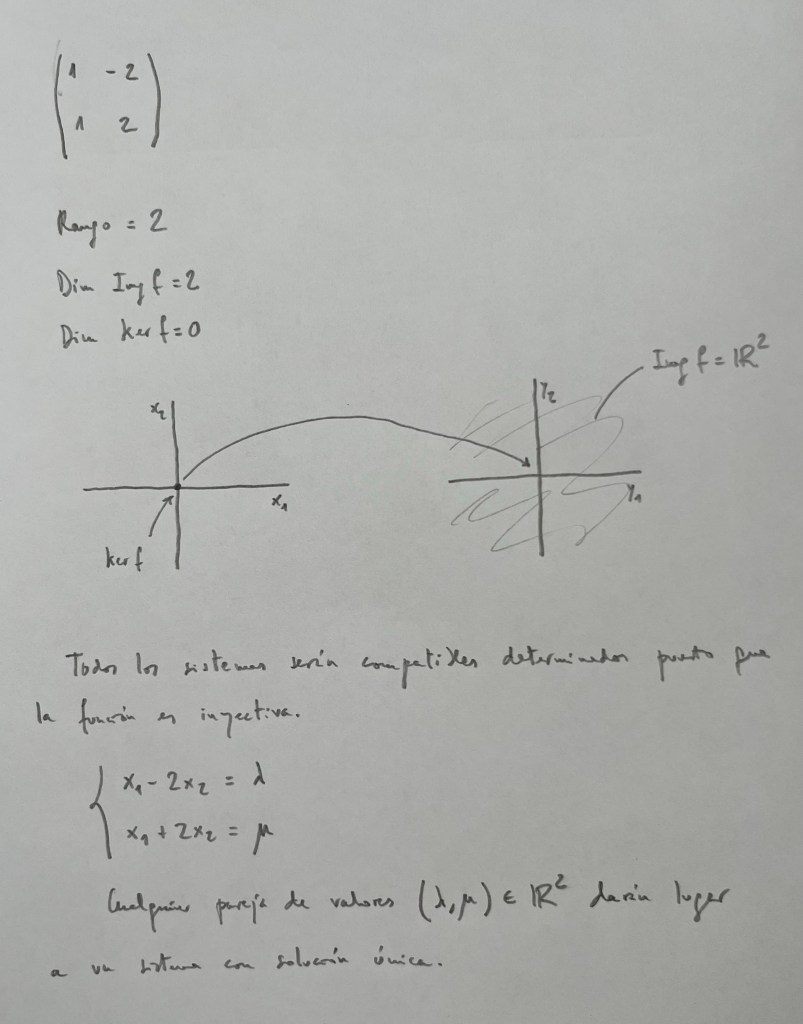 1 -2
1 2
Rango = 2
Dim Img f = 2
Dim ker f = 0
Img f = ℝ²
x₂
y₂
x₁
y₁
ker f
Todos los sistemas serán compatibles determinados puesto que
la función es inyectiva.
x₁ - 2x₂ = λ
x₁ + 2x₂ = μ
Cualquier pareja de valores (λ, μ) ∈ ℝ² darán lugar
a un sistema con solución única.